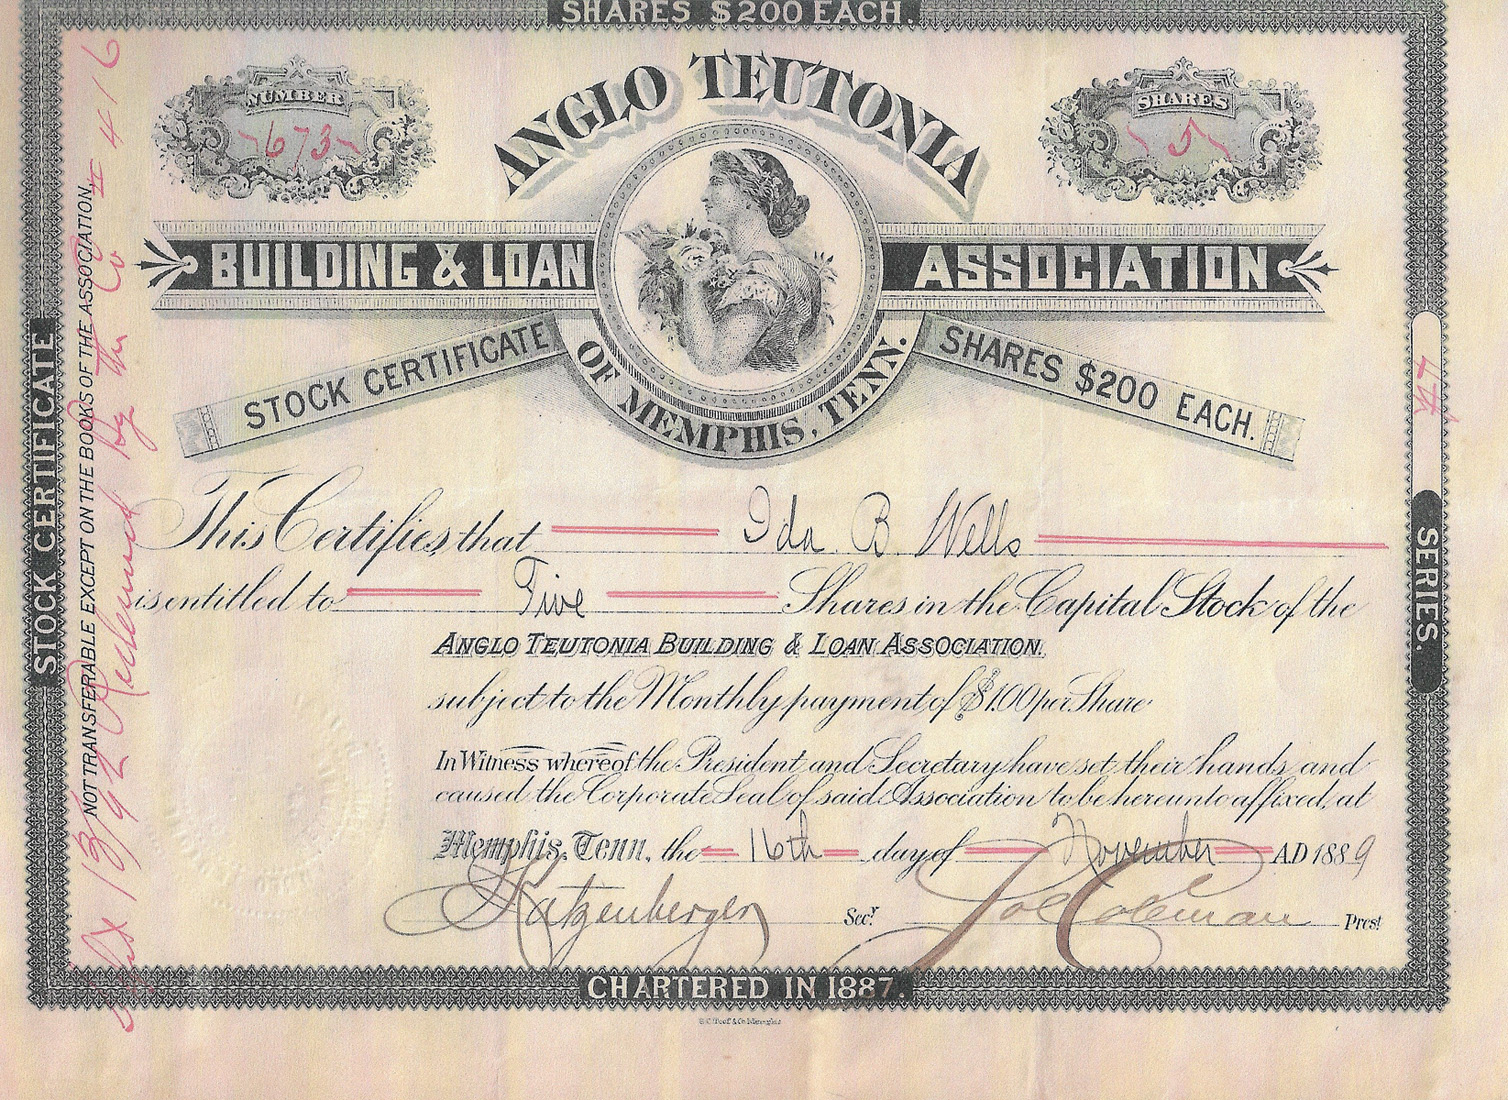 SHARES $200 EACH.
NUMBER
673
SHARES
5
ANGLO TEUTONIA
BUILDING & LOAN ASSOCIATION
OF MEMPHIS, TENN.
STOCK CERTIFICATE
SHARES $200 EACH.
This Certifies that Ida B Wells
is entitled to Five Shares in the Capital Stock of the
ANGLO TEUTONIA BUILDING & LOAN ASSOCIATION.
subject to the Monthly payment of $1.00 per Share
In Witness whereof the President and Secretary have set their hands and
caused the Corporate Seal of said Association to be hereunto affixed, at
Memphis, Tenn, the 16th day of November AD 1889
Katzenberger Secy. Coleman Prest
CHARTERED IN 1887.
STOCK CERTIFICATE
NOT TRANSFERABLE EXCEPT ON THE BOOKS OF THE ASSOCIATION
13/92 Redeemed by the Co # 416
4th
SERIES.